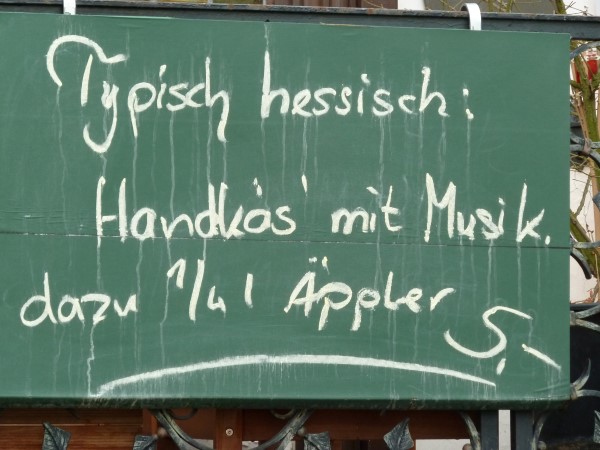 Typisch hessisch:
Handkäs' mit Musik.
dazu 1/4 l Äppler 5.-